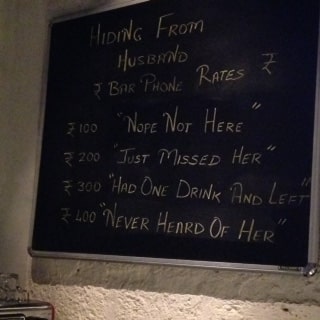 Hiding From
Husband
₹ Bar Phone Rates ₹
₹ 100 "Nope Not Here"
₹ 200 "Just Missed Her"
₹ 300 "Had One Drink And Left"
₹ 400 "Never Heard Of Her"